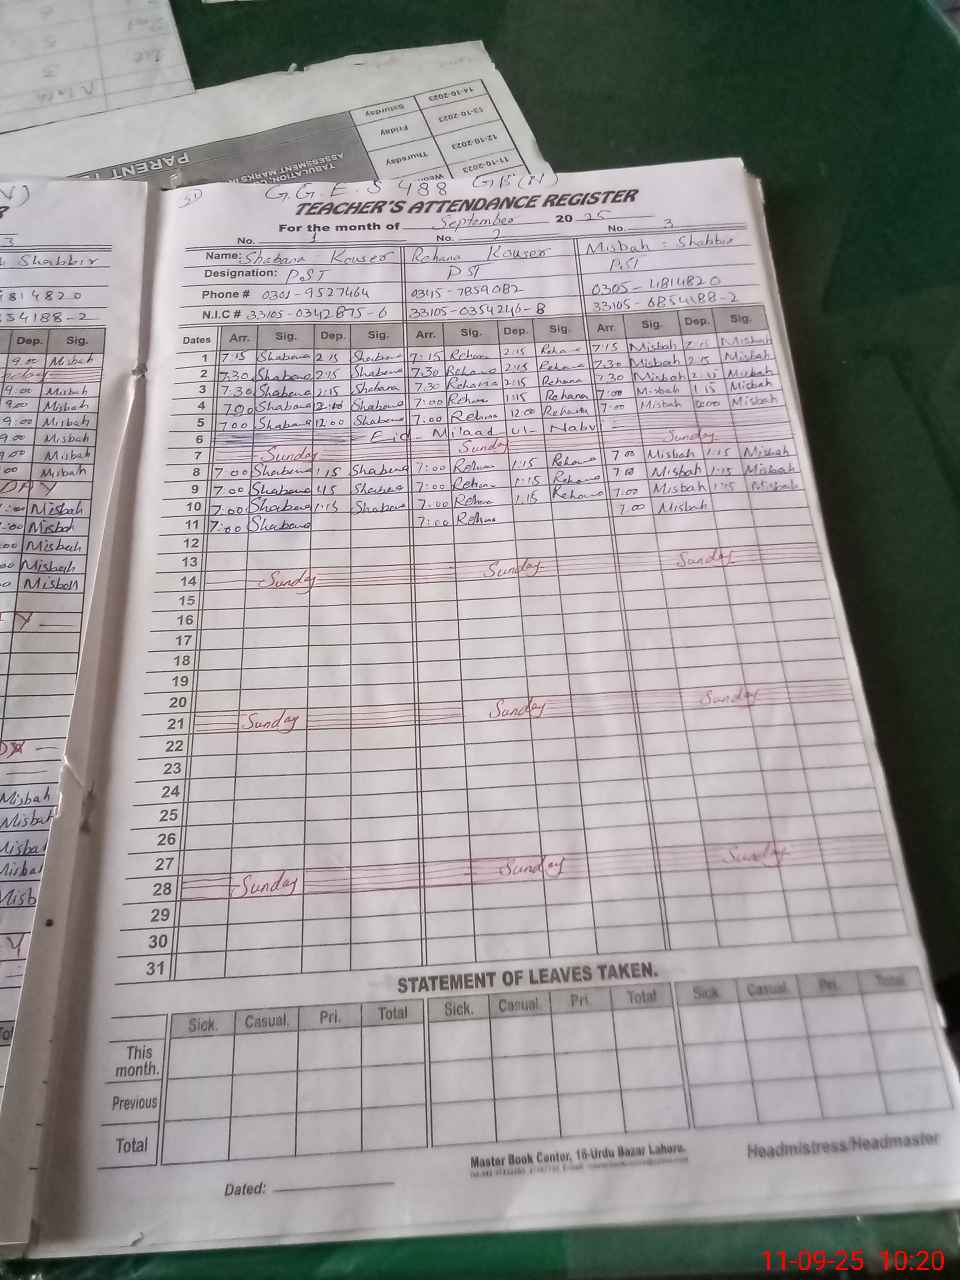 PARENT
TABULATION, CO
ASSESSMENT MARKS
Saturday
14-10-2023
Friday
13-10-2023
Thursday
12-10-2023
11-10-2023
G.G.E.S 488 GB(N)
TEACHER'S ATTENDANCE REGISTER
For the month of September 2025
No. 1 No. 2 No. 3
Name: Shabana Kouser Rehana Kouser Misbah : Shabbir
Designation: PST PST PST
Phone # 0301-9527464 0345-7859082 0305-4814820
N.I.C # 33105-0342875-6 33105-0354246-8 33105-6854188-2
Dates Arr. Sig. Dep. Sig. Arr. Sig. Dep. Sig. Arr. Sig. Dep. Sig.
1 7:15 Shabana 2:15 Shabana 7:15 Rehana 2:15 Rehana 7:15 Misbah 2:15 Misbah
2 7:30 Shabana 2:15 Shabana 7:30 Rehana 2:15 Rehana 7:30 Misbah 2:15 Misbah
3 7:30 Shabana 2:15 Shabana 7:30 Rehana 2:15 Rehana 7:30 Misbah Misbah
4 7:00 Shabana Shabana 7:00 Rehana 1:15 Rehana 7:00 Misbah 1:15 Misbah
5 7:00 Shabana 12:00 Shabana 7:00 Rehana 12:00 Rehana 7:00 Misbah 12:00 Misbah
6 Eid - Milaad - ul - Nabvi -
7 Sunday Sunday Sunday
8 7:00 Shabana 1:15 Shabana 7:00 Rehana 1:15 Rehana 7:00 Misbah 1:15 Misbah
9 7:00 Shabana 1:15 Shabana 7:00 Rehana 1:15 Rehana 7:00 Misbah 1:15 Misbah
10 7:00 Shabana 1:15 Shabana 7:00 Rehana 1:15 Rehana 7:00 Misbah 1:15 Misbah
11 7:00 Shabana 7:00 Rehana 7:00 Misbah
12
13
14 Sunday Sunday Sunday
15
16
17
18
19
20
21 Sunday Sunday Sunday
22
23
24
25
26
27
28 Sunday Sunday Sunday
29
30
31
STATEMENT OF LEAVES TAKEN.
Sick. Casual. Pri. Total Sick. Casual. Pri. Total Sick. Casual. Pri. Total
This month.
Previous
Total
Master Book Center, 16-Urdu Bazar Lahore.
Headmistress/Headmaster
Dated:
Shabbir
814820
54188-2
Dep. Sig.
9:00 Misbah
9:00 Misbah
9:00 Misbah
9:00 Misbah
9:00 Misbah
9:00 Misbah
:00 Misbah
DAY
:00 Misbah
:00 Misbah
:00 Misbah
:00 Misbah
Misbah
Misbah
Misbah
Misbah
Misbah
Misb
11-09-25 10:20